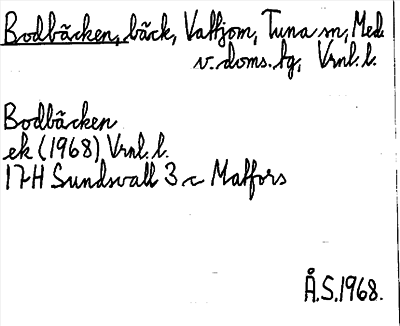 Bodbäcken, bäck, Vattjom, Tuna sn, Med.
v. doms. tg, Vrnl. l.
Bodbäcken
ek (1968) Vrnl. l.
17H Sundsvall 3 c Matfors
Å.S. 1968.